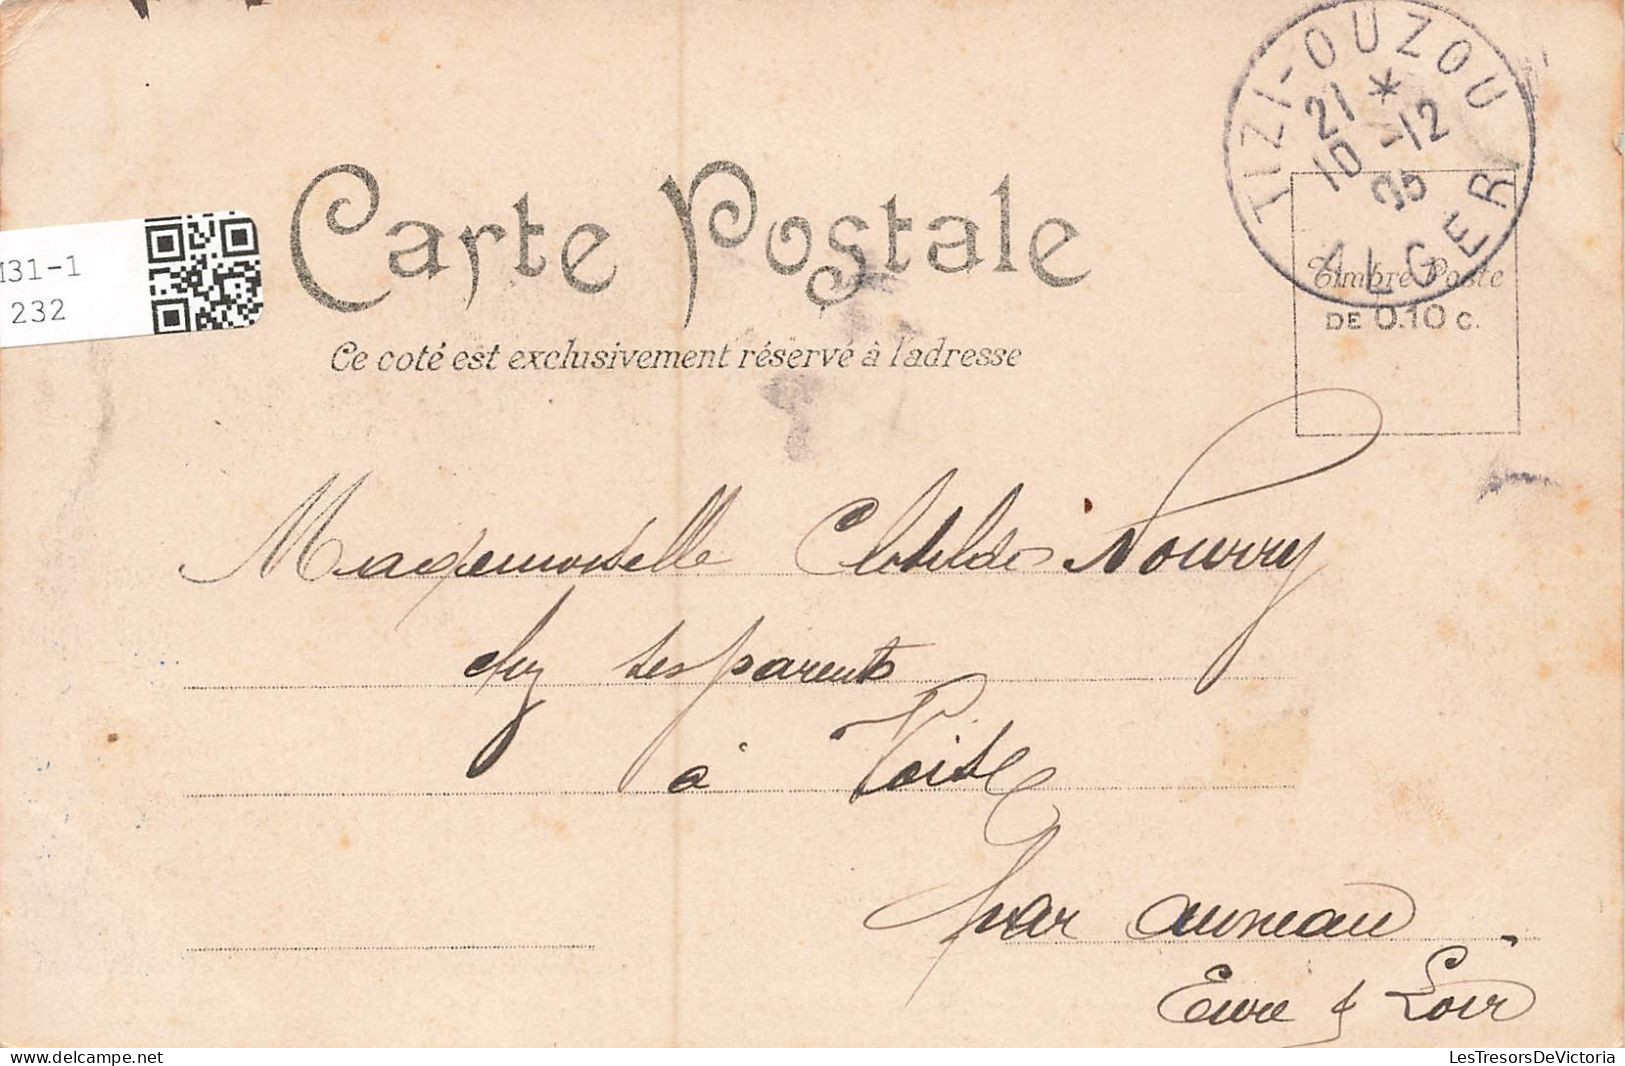 TIZI-OUZOU
21 *
10 -12
05
ALGER
Carte Postale
Timbre Poste
DE 0.10 c.
Ce coté est exclusivement réservé à l'adresse
31-1
232
Mademoiselle Clotilde Nourry
chez ses parents
à Voise
par auneau
Eure & Loir
LesTresorsDeVictoria